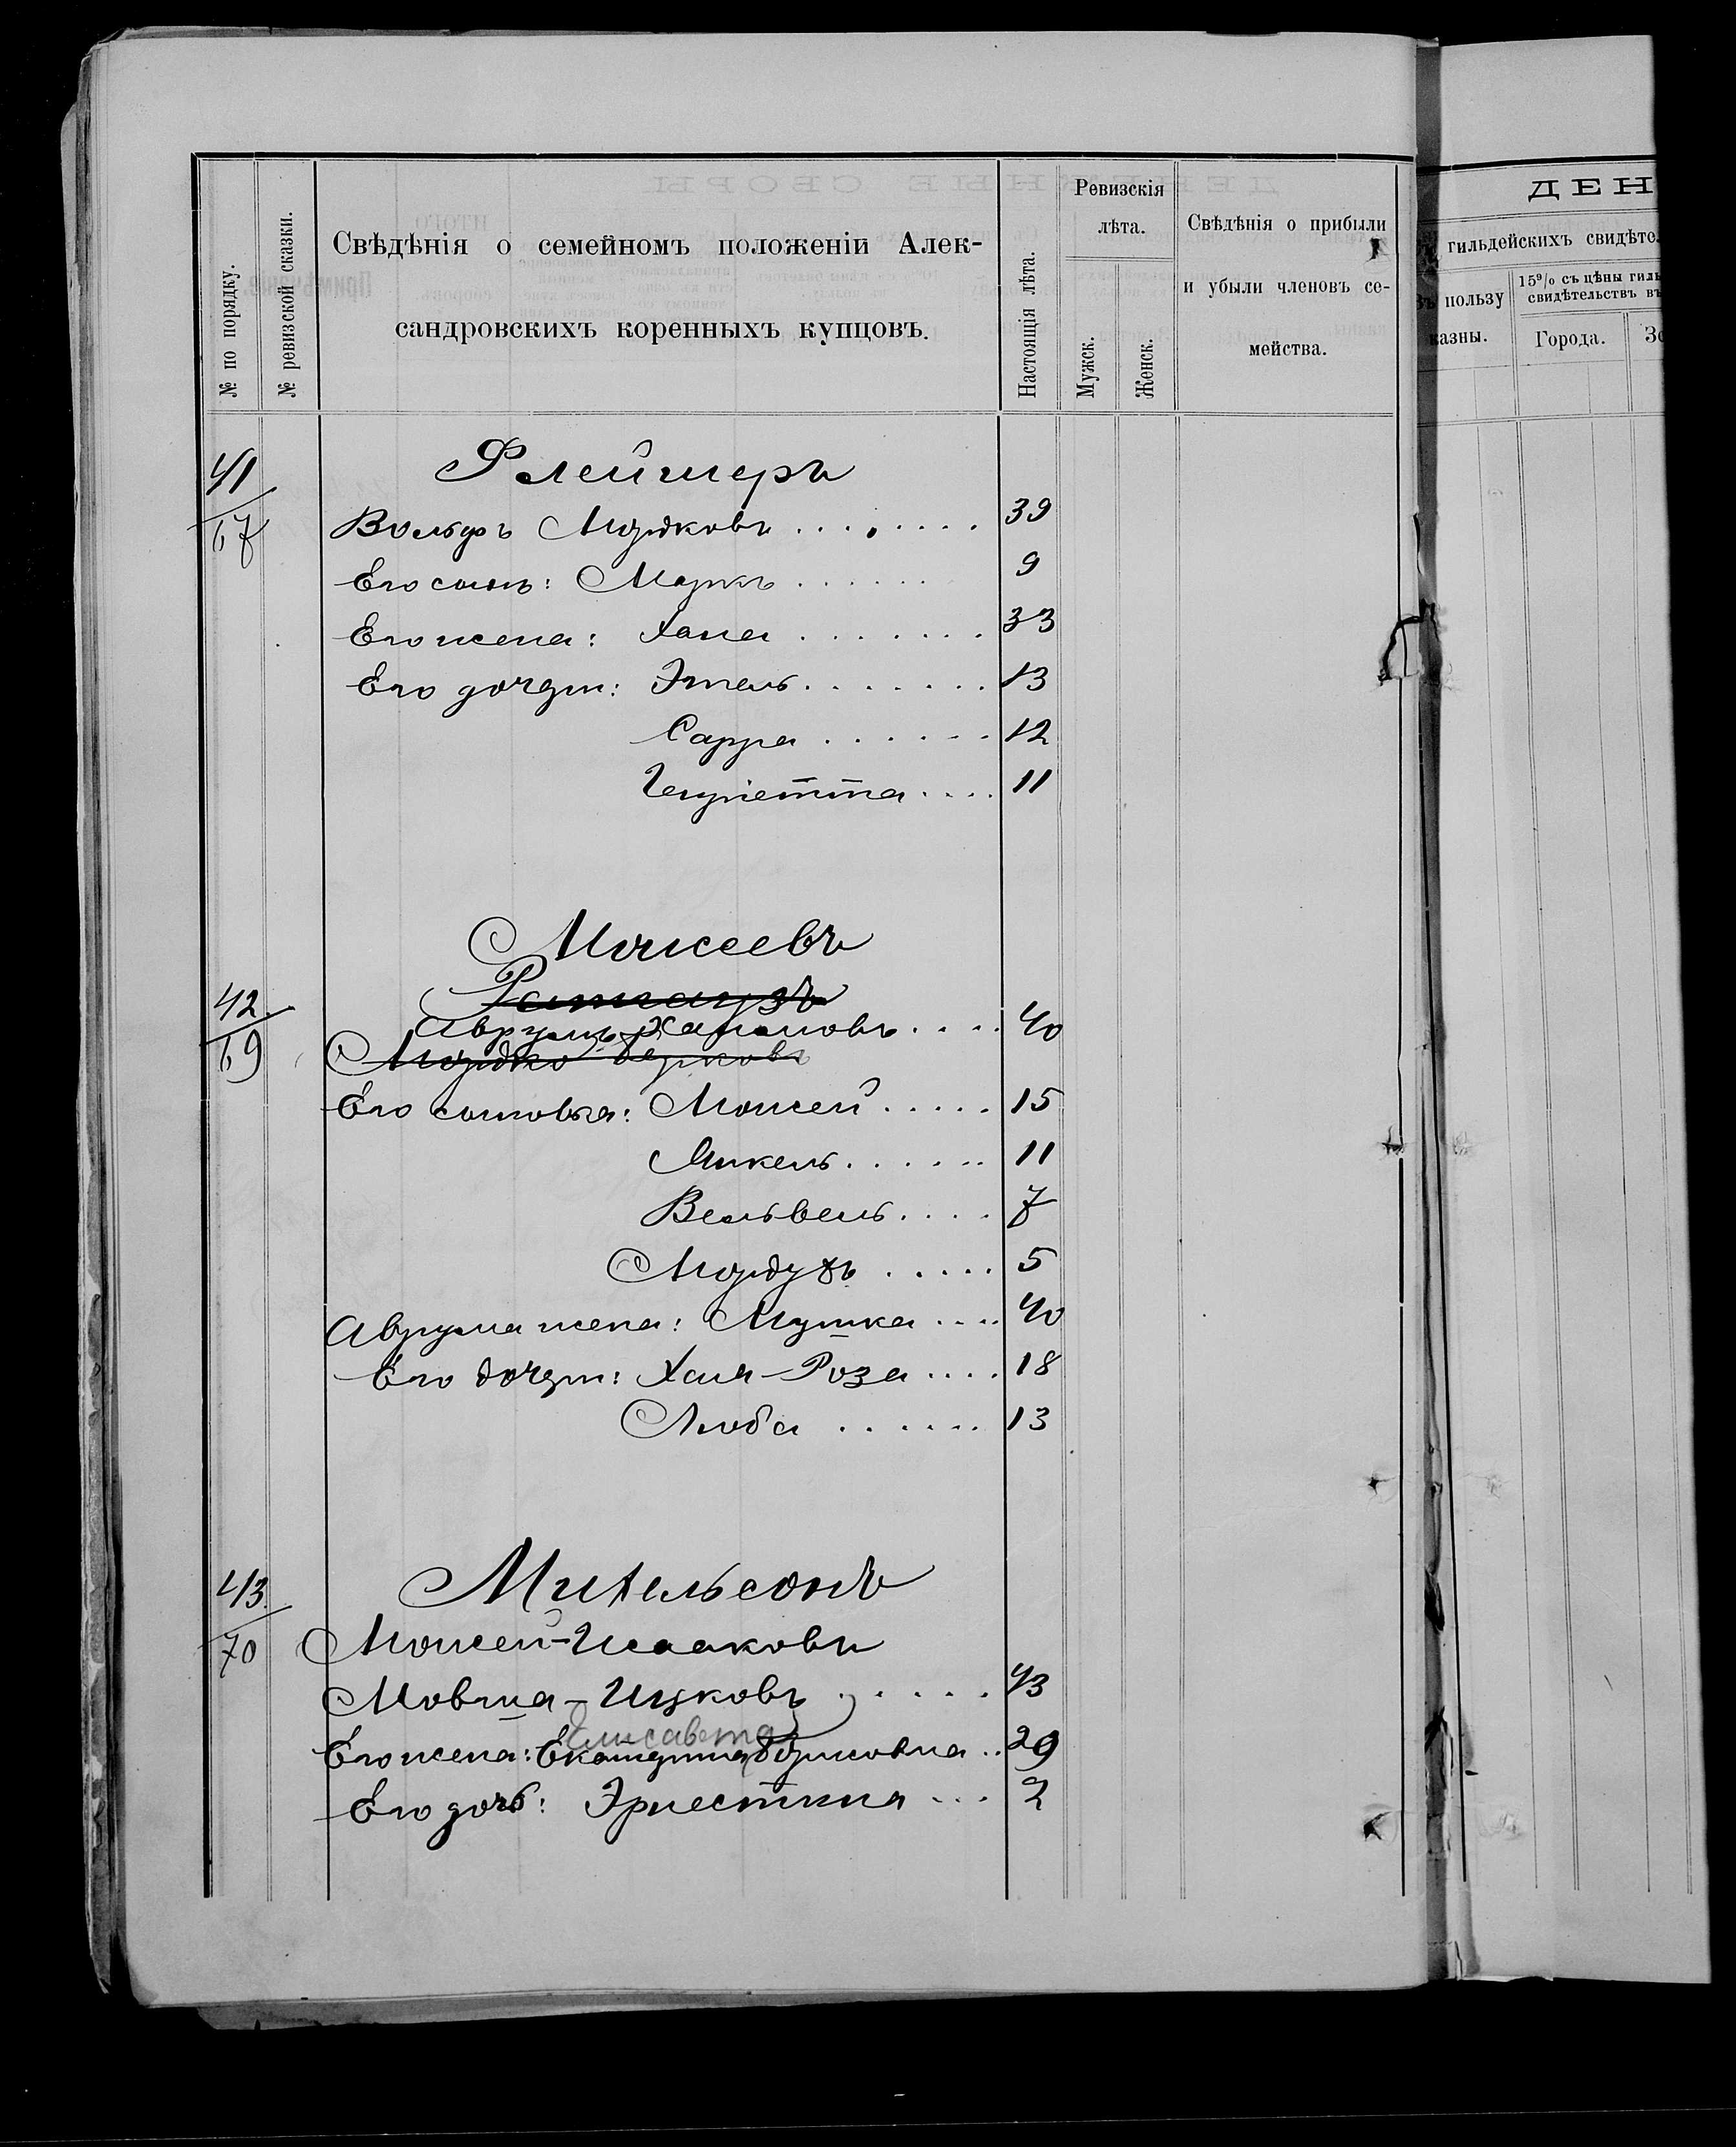 № по порядку.
№ ревизской сказки.
Свѣдѣнія о семейномъ положеніи Алек-
сандровскихъ коренныхъ купцовъ.
Настоящія лѣта.
Ревизскія
лѣта.
Мужск.
Женск.
Свѣдѣнія о прибыли
и убыли членовъ се-
мейства.
ДЕН
гильдейскихъ свидѣте
пользу
казны.
15% съ цѣны гиль
свидѣтельствъ въ
Города.
41
67
Флейшеръ
Вольфъ Мордковъ . . . . . . . 39
Его сынъ: Маркъ . . . . . . 9
Его жена: Хана . . . . . . . 33
Его дочери: Этель . . . . . . . 13
Сарра . . . . . . 12
Генріетта . . . . 11
Моисеевъ
42
69
Аврумъ Хаимовъ . . . . 40
Мордко Берковъ
Его сыновья: Моисей . . . . . 15
Янкель . . . . . . 11
Вельвель . . . . 7
Мордухъ . . . . . 5
Аврума жена: Мушка . . . . 40
Его дочери: Хая-Роза . . . . 18
Люба . . . . . . 13
43
70
Мительсонъ
Моисей-Исааковъ
Мовша-Ицковъ . . . . . 43
Елисавета
Его жена: Екатерина Борисовна . . 29
Его дочь: Эрнестина . . . 2